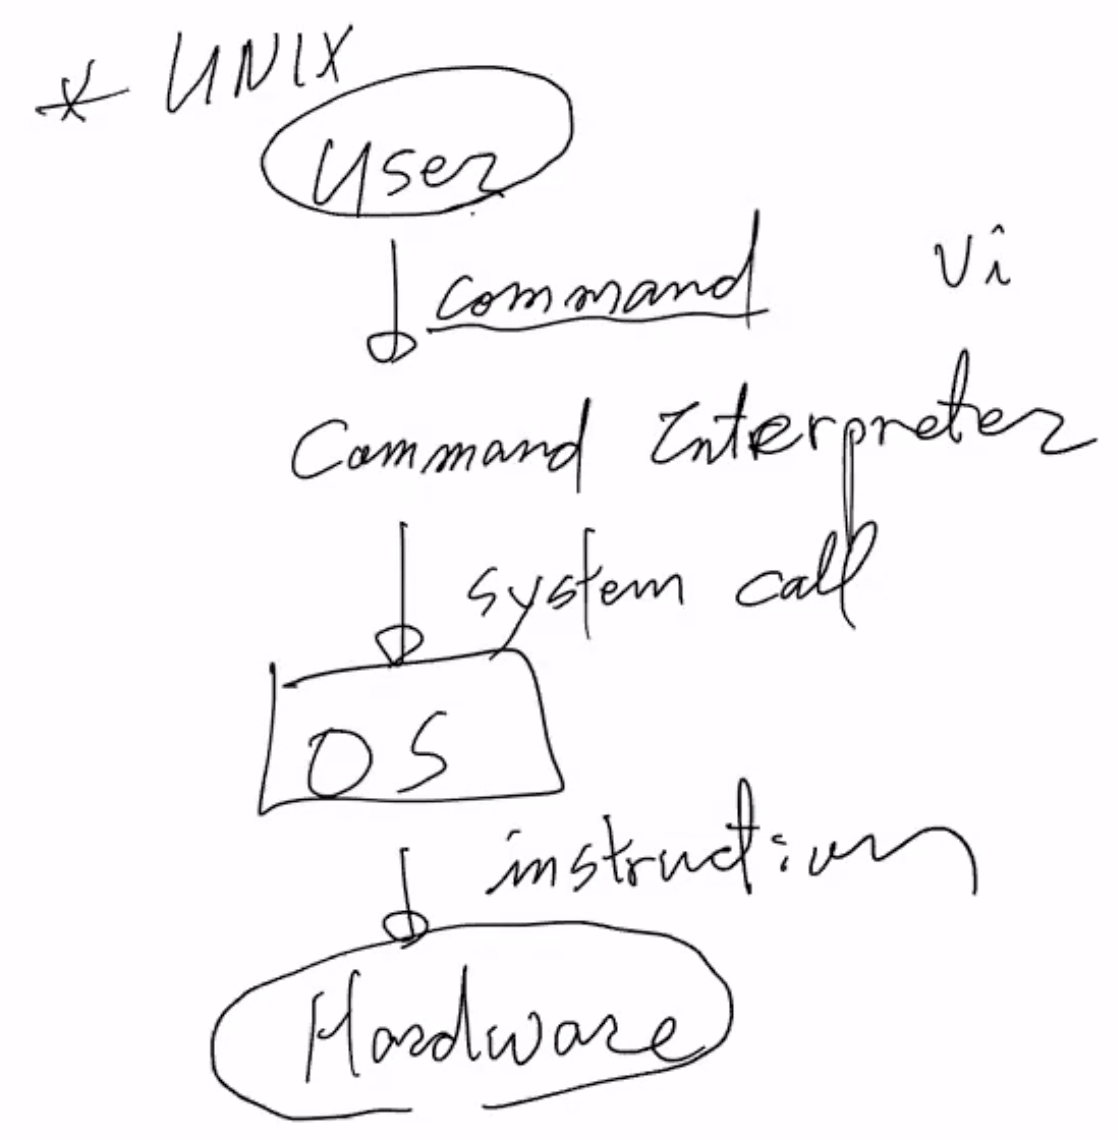 * UNIX
User
command
Vi
Command Interpreter
system call
OS
instruction
Hardware